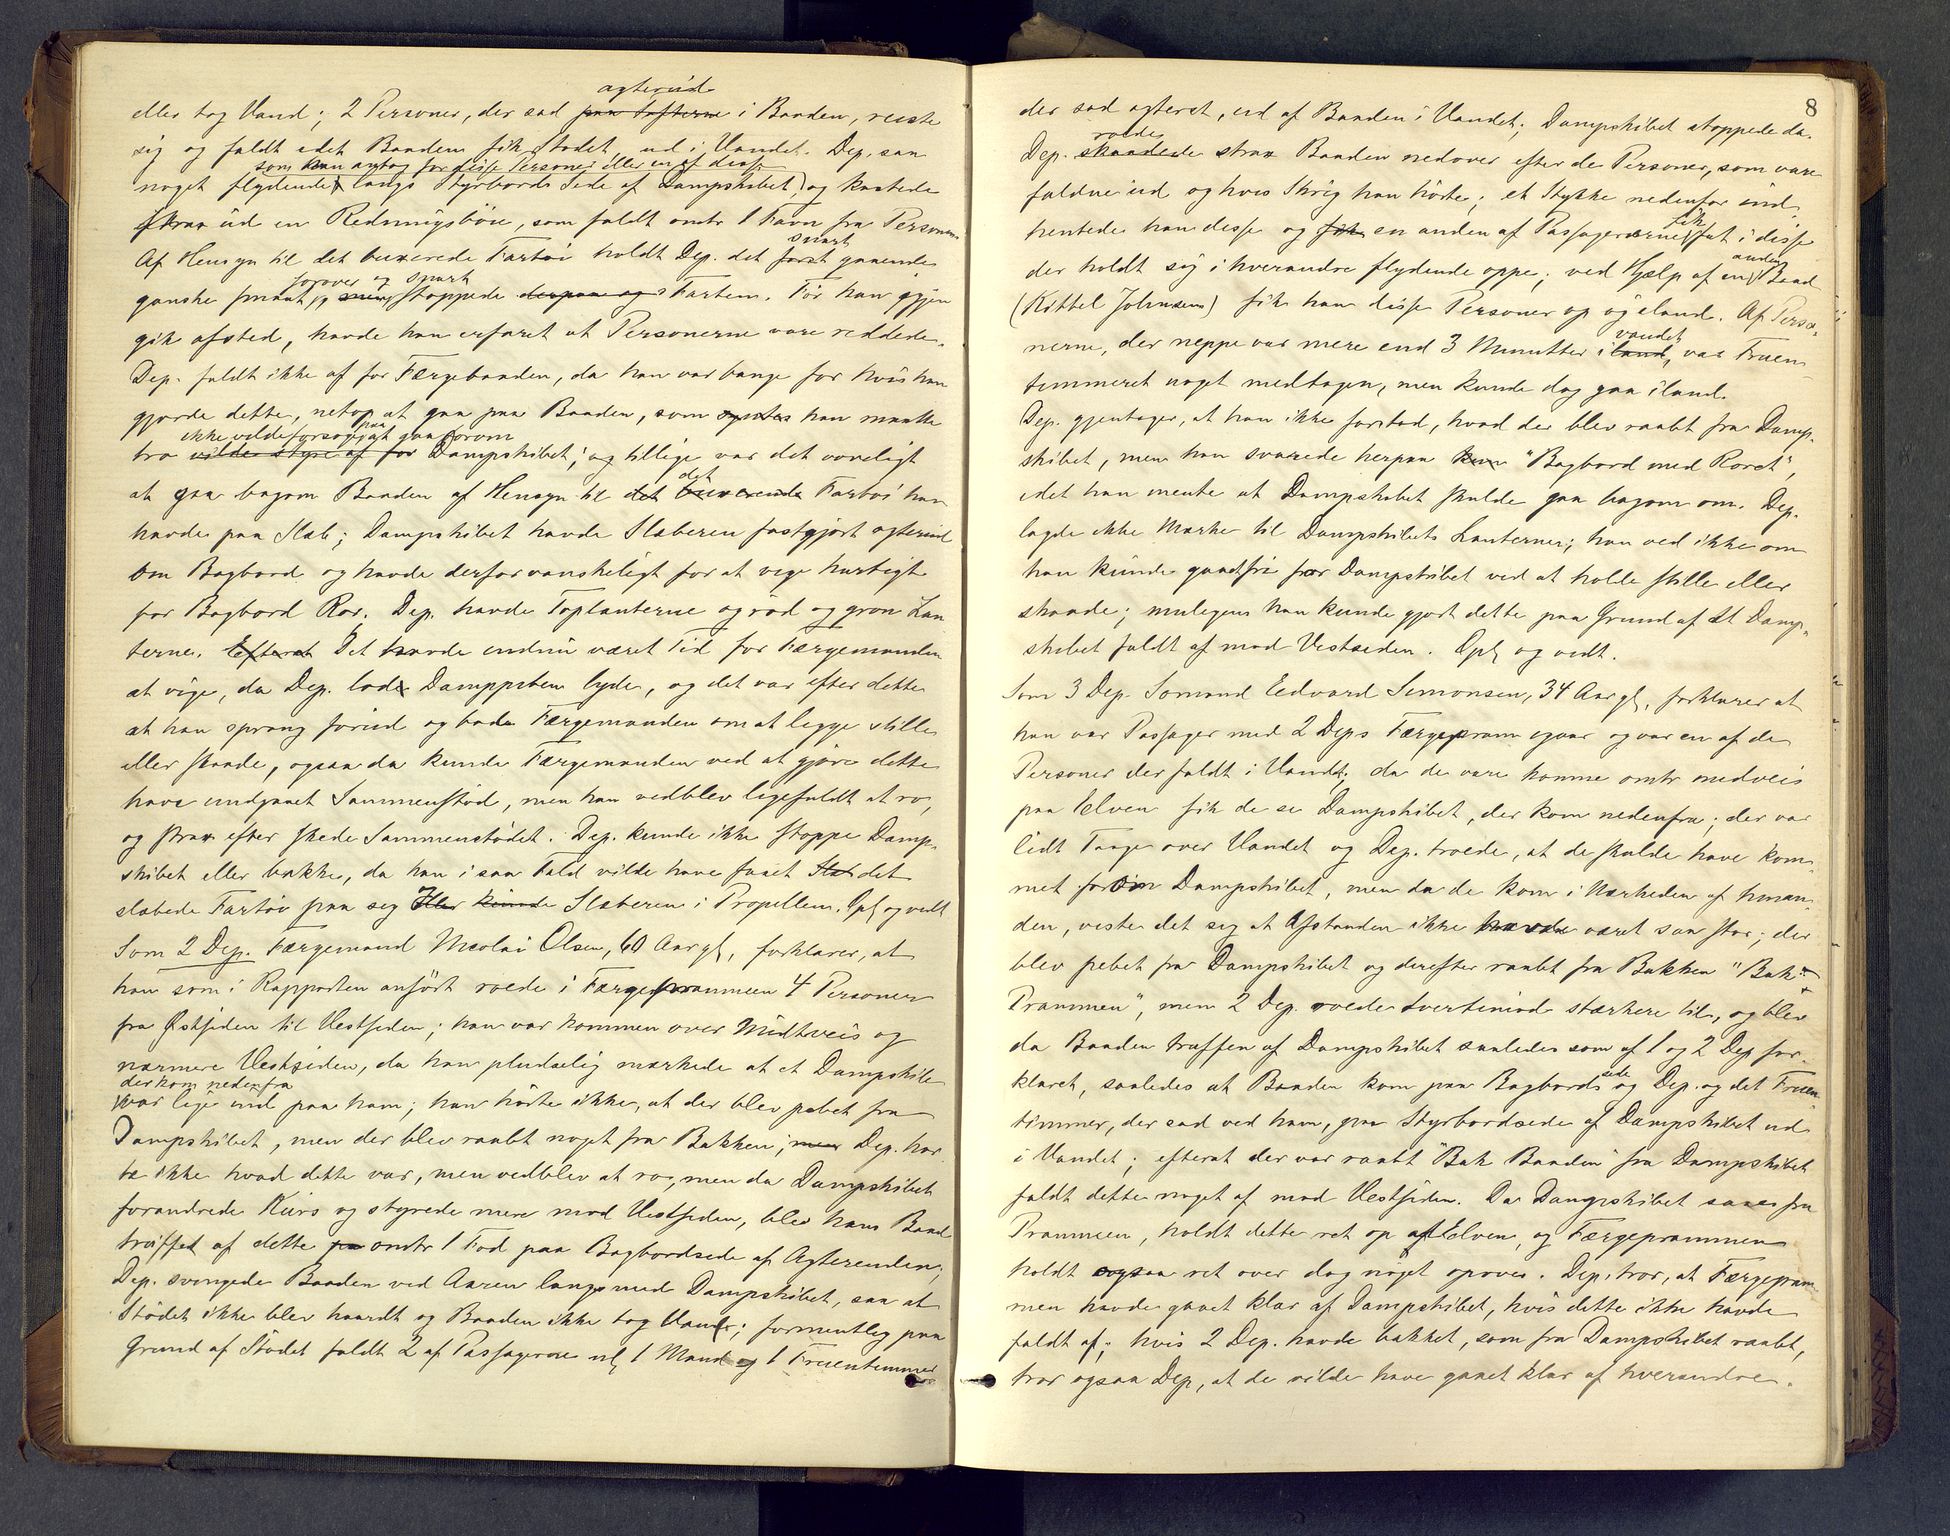 agterud
eller tog Vand; 2 Personer, der sad paa Tofterne i Baaden, reiste
sig og faldt idet Baaden fik Stødet, ud i Vandet. Dep. saa
som han antog for disse Personer eller en af disse
noget flydende langs Styrbords Side af Dampskibet, og kastede
strax ud en Redningsbøie, som faldt omtr 1 Favn fra Personerne.
snart
Af Hensyn til det buxerede Fartøi holdt Dep. det først gaaende
forover og snart
ganske smaat, stoppede derpaa og Farten. Før han igjen
gik afsted, havde han erfaret at Personerne vare reddede.
Dep. faldt ikke af for Færgebaaden, da han var bange for hvis han
gjorde dette, netop at gaa paa Baaden, som syntes han maatte
ikke vilde forsøge paa at gaa forom
tro vilde styre af for Dampskibet; og tillige var det voveligt
det
at gaa bagom Baaden af Hensyn til det buxerende Fartøi han
havde paa Slæb; Dampskibet havde Slæberen fastgjort agterind
om Bagbord og havde derfor vanskeligt for at vige hurtigt
for Bagbord Ror. Dep. havde Toplanterne og rød og grøn Lan
terne. Efterat Det havde endnu været Tid for Færgemanden
at vige, da Dep. lod Damppiben lyde, og det var efter dette
at han sprang forud og bad Færgemanden om at ligge stille
eller skaade, ogsaa da kunde Færgemanden ved at gjøre dette
have undgaaet Sammenstød, men han vedblev ligefuldt at ro,
og strax efter skede Sammenstødet. Dep. kunde ikke stoppe Damp-
skibet eller bakke, da han i saa Fald vilde have faaet det
slæbede Fartøi paa sig eller kunde Slæberen i Propellen. Opl. og vedt
Som 2 Dep. Færgemand Nicolai Olsen, 60 Aar gl, forklarer, at
han som i Rapporten anført roede i Færgeprammen 4 Personer
fra Østsiden til Vestsiden; han var kommen over Midtveis og
nærmere Vestsiden, da han pludselig mærkede at et Dampskib
der kom nedenfra
var lige ind paa ham; han hørte ikke, at der blev pebet fra
Dampskibet, men der blev raabt noget fra Bakken; men Dep. hør
te ikke hvad dette var, men vedblev at ro, men da Dampskibet
forandrede Kurs og styrede mere mod Vestsiden, blev hans Baad
truffet af dette paa omtr 1 Fod paa Bagbordsside af Agterenden;
Dep. svingede Baaden ved Aaren langs med Dampskibet, saa at
Stødet ikke blev haardt og Baaden ikke tog Vand; formentlig paa
Grund af Stødet faldt 2 af Passagererne nl, 1 Mand og 1 Fruentimmer
8
der sad agterst, ud af Baaden i Vandet; Dampskibet stoppede da.
roede
Dep. skaadede strax Baaden nedover efter de Personer, som vare
faldne ud og hvis Skrig han hørte; et Stykke nedenfor ind
fik
hentede han disse og fik en anden af Passagererne fat i disse
anden
der holdt sig i hverandre flydende oppe; ved Hjælp af en Baad
(Kittel Johnsen) fik han disse Personer op og iland. Af Perso-
vandet
nerne, der neppe var mere end 3 Minutter i land, var Fruen-
timmeret noget medtagen, men kunde dog gaa iland.
Dep. gjentager, at han ikke forstod, hvad der blev raabt fra Damp-
skibet, men han svarede herpaa kun "Bagbord med Roret",
idet han mente at Dampskibet skulde gaa bagom om. Dep.
lagde ikke Mærke til Dampskibets Lanterner; han ved ikke om
han kunde gaaet fri for Dampskibet ved at holde stille eller
skaade; muligens han kunde gjort dette paa Grund af at Damp-
skibet faldt af mod Vestsiden. Opl. og vedt.
Som 3 Dep. Sømand Edvard Simonsen, 34 Aar gl, forklarer at
han var Passager med 2 Deps Færgepram igaar og var en af de
Personer der faldt i Vandet; da de vare komne omtr midveis
paa Elven fik de se Dampskibet, der kom nedenfra; der var
lidt Taage over Vandet og Dep. troede, at de skulde have kom-
met forom Dampskibet, men da de kom i Nærheden af hinan-
den, viste det sig at Afstanden ikke havde været saa stor; der
blev pebet fra Dampskibet og derefter raabt fra Bakken "Bak
Prammen", men 2 Dep. roede tvertimod stærkere til, og blev
da Baaden truffen af Dampskibet saaledes som af 1 og 2 Dep for-
side
klaret, saaledes at Baaden kom paa Bagbords og Dep. og det Fruen
timmer, der sad ved ham, paa Styrbordside af Dampskibet ud
i Vandet; efterat der var raabt "Bak Baaden" fra Dampskibet
faldt dette noget af mod Vestsiden. Da Dampskibet saaes fra
Prammen, holdt dette ret op af Elven, og Færgeprammen
holdt ogsaa ret over dog noget opover. Dep. tror, at Færgepram
men havde gaaet klar af Dampskibet, hvis dette ikke havde
faldt af; hvis 2 Dep. havde bakket, som fra Dampskibet raabt,
tror ogsaa Dep, at de vilde have gaaet klar af hverandre.